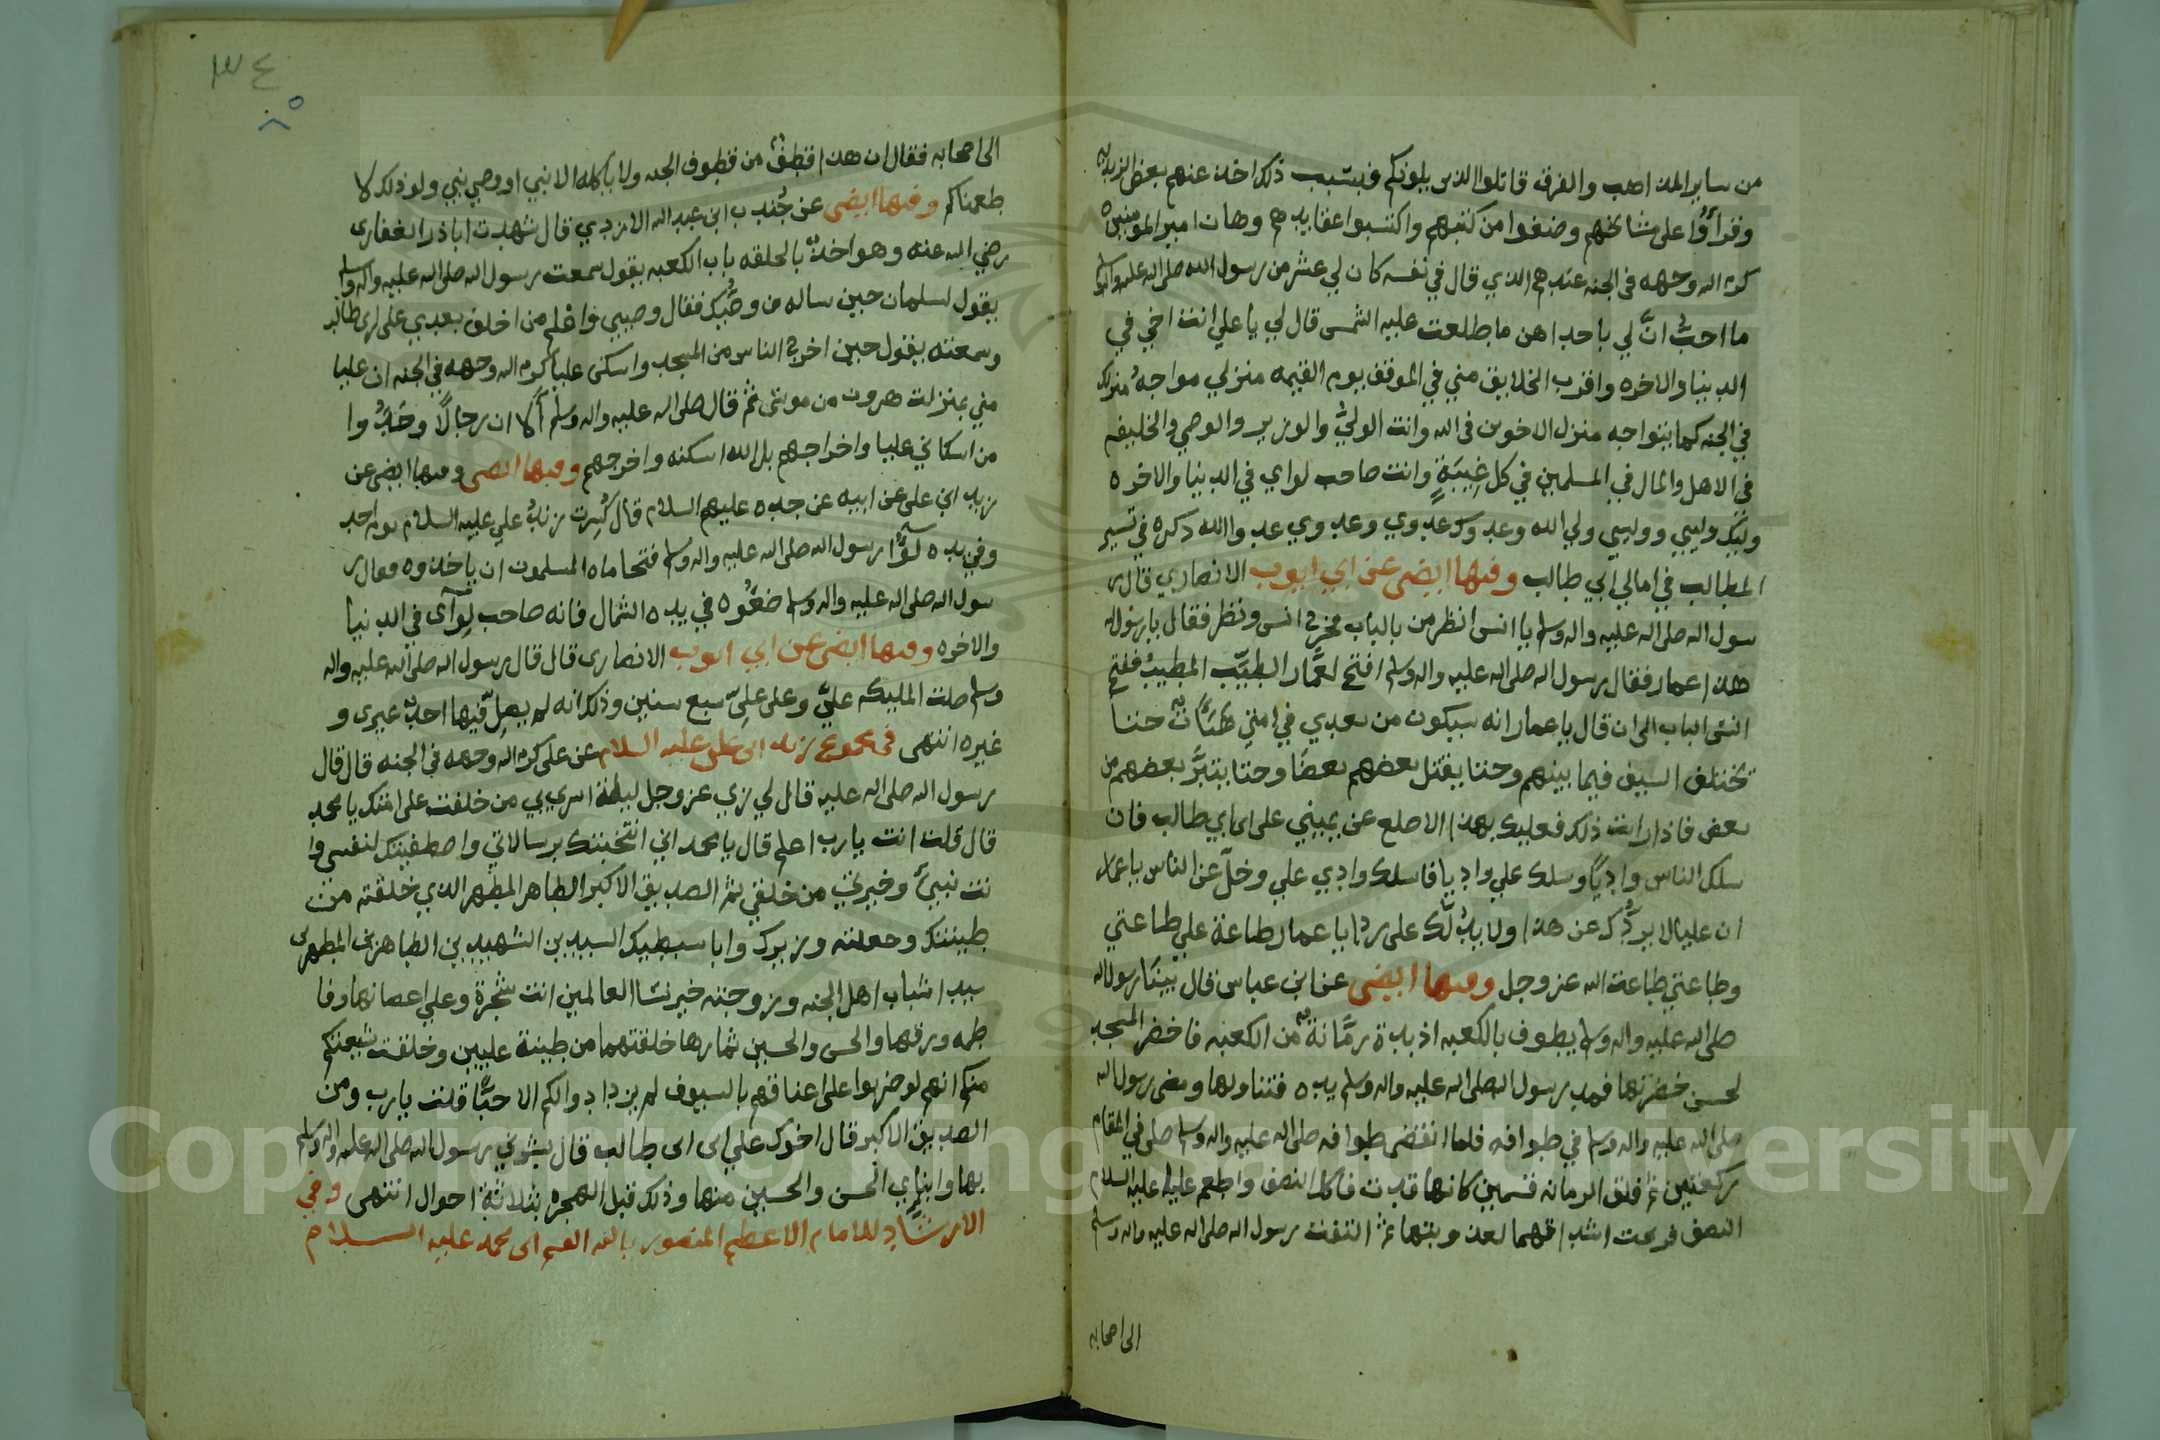 من ساير المذاهب والفرق قاتلوا الذين يلونكم فبسبب ذلك اخذ عنهم بعض الزيديه
وقرأوا على مشائخهم وضفوا من كتبهم واكتسبوا عقايدهم وهان امير المومنين
كرم الله وجهه في الجنه عندهم الذي قال في نفسه كان لي عشر من رسول الله صلى الله عليه واله وسلم
ما احبُّ انَّ لي باحداهن ما طلعت عليه الشمس قال لي يا علي انت اخي في
الدنيا والاخره واقرب الخلايق مني في الموقف يوم القيمه منزلي مواجهُ منزلك
في الجنه كما يتواجه منزل الاخوين في الله وانت الوليُّ والوزير والوصي والخليفه
في الاهل والمال في المسلمين في كل غيبةٍ وانت صاحب لواي في الدنيا والاخره
وليك وليي ووليي ولي الله وعدوك عدوي وعدوي عدو الله ذكره في تسير
المطالب في امالي ابي طالب وفيها ايضى عن ابي ايوب الانصاري قال ر
سول الله صلى الله عليه واله وسلم يا انس انظر من بالباب فخرج انس ونظر فقال يا رسول الله
هذا عمار فقال رسول الله صلى الله عليه واله وسلم افتح لعمَّار الطيِّب المطيبُ ففتح
انس الباب الى ان قال يا عمار انه سيكون من بعدي في امتي هَنَاتٌ حتا
تختلف السيف فيما بينهم وحتا يقتل بعضهم بعضًا وحتا يتبرَّ بعضهم من
بعض فاذا رايت ذلك فعليك بهذا الاصلع عن يميني علي ابن ابي طالب فان
سلك الناس واديًا وسلك علي واديا فاسلك وادي علي وخلّ عن الناس يا عمار
ان عليا لا يردُّك عن هدا ولا يدُلُّك على ردا يا عمار طاعة علي طاعتي
وطاعتي طاعة الله عز وجل وفيها ايضى عن ابن عباس قال بينا رسول الله
صلى الله عليه واله وسلم يطوف بالكعبه اذ بدة رمَّانةٌ من الكعبه فاخضر المسجد
لحسن خضرتها فمد رسول الله صلى الله عليه واله وسلم يده فتناولها ومضى رسول الله
صلى الله عليه واله وسلم في طوافه فلما انقضى طوافه صلى الله عليه واله وسلم صلى في المقام
ركعتين ثم فلق الرمانه قسمين كانها قدت فاكل النصف واطعم عليا عليه السلام
النصف فرنحت اشداقهما لعذوبتها ثم التفت رسول الله صلى الله عليه واله وسلم
الى اصحابه
٣٤
الى اصحابه فقال ان هذا قطفٌ من قطوف الجنه ولا ياكله الا نبي او وصي نبي ولو ذلك لا
طعمناكم وفيها ايضى عن جُندب ابن عبد الله الازدي قال شهدت ابا ذر الغفارى
رضي الله عنه وهو اخذٌ بالحلقه باب الكعبه يقول سمعت رسول الله صلى الله عليه واله وسلم
يقول لسلمان حين ساله من وصُّيك فقال وصيي واعلم من اخلف بعدي علي ابن ابي طالب
وسمعته يقول حين اخرج الناس من المسجد واسكن عليا كرم الله وجهه في الجنه ان عليا
مني بمنزلت هرون من موسى ثم قال صلى الله عليه واله وسلم ألا ان رجالًا وجَدُوا
من اسكاني عليا واخراجهم بل الله اسكنه واخرجهم وفيها ايضى وفيها ايضى عن
زيد ابن علي عن ابيه عن جده عليهم السلام قال كُسِرت زندُ علي عليه السلام يوم احد
وفي يده لوآُ رسول الله صلى الله عليه واله وسلم فتحاماه المسلمون ان ياخذوه فقال ر
سول الله صلى الله عليه واله وسلم ضعُوه في يده الشمال فانه صاحب لِوآى في الدنيا
والاخره وفيها ايضى عن ابي ايوب الانصارى قال قال رسول الله صلى الله عليه واله
وسلم صلت المليكه عليَّ وعلى عليّ سبع سنين وذلك انه لم يصلّ فيها احدٌ غيرى و
غيره انتهى في مجموع زيد ابن علي عليه السلام عن علي كرم الله وجهه في الجنه قال قال
رسول الله صلى الله عليه قال لي ربي عز وجل ليلة اسري بي من خلفت على امتك يا محمد
قال قلت انت يا رب اعلم قال يا محمد اني انتخبتك برسالاتي واصطفيتك لنفسى وا
نت نبييّ وخيرتي من خلقي ثم الصديق الاكبر الطاهر المطهر الذي خلقته من
طينتك وجعلته وزيرك وابا سبطيك السيدين الشهيدين الطاهرين المطهرين
سيدا شباب اهل الجنه وزوجته خير نسا العالمين انت شجرة وعلي اغصانها وفا
طمه ورقها والحسن والحسين ثمارها خلقتهما من طينة عليين وخلقت شيعتكم
منكم انهم لو ضربوا على اعناقهم بالسيوف لم يزدادوا لكم الا حبًّا قلت يارب ومن
الصديق الاكبر قال اخوك علي ابن ابي طالب قال بشرني رسول الله صلى الله عليه واله وسلم
بها وابناي الحسن والحسين منها وذلك قبل الهجره بثلاثة احوال انتهى وفي
الارشاد للامام الاعظم المنصور بالله القسم ابن محمد عليه السلام
Copyright © King Saud University